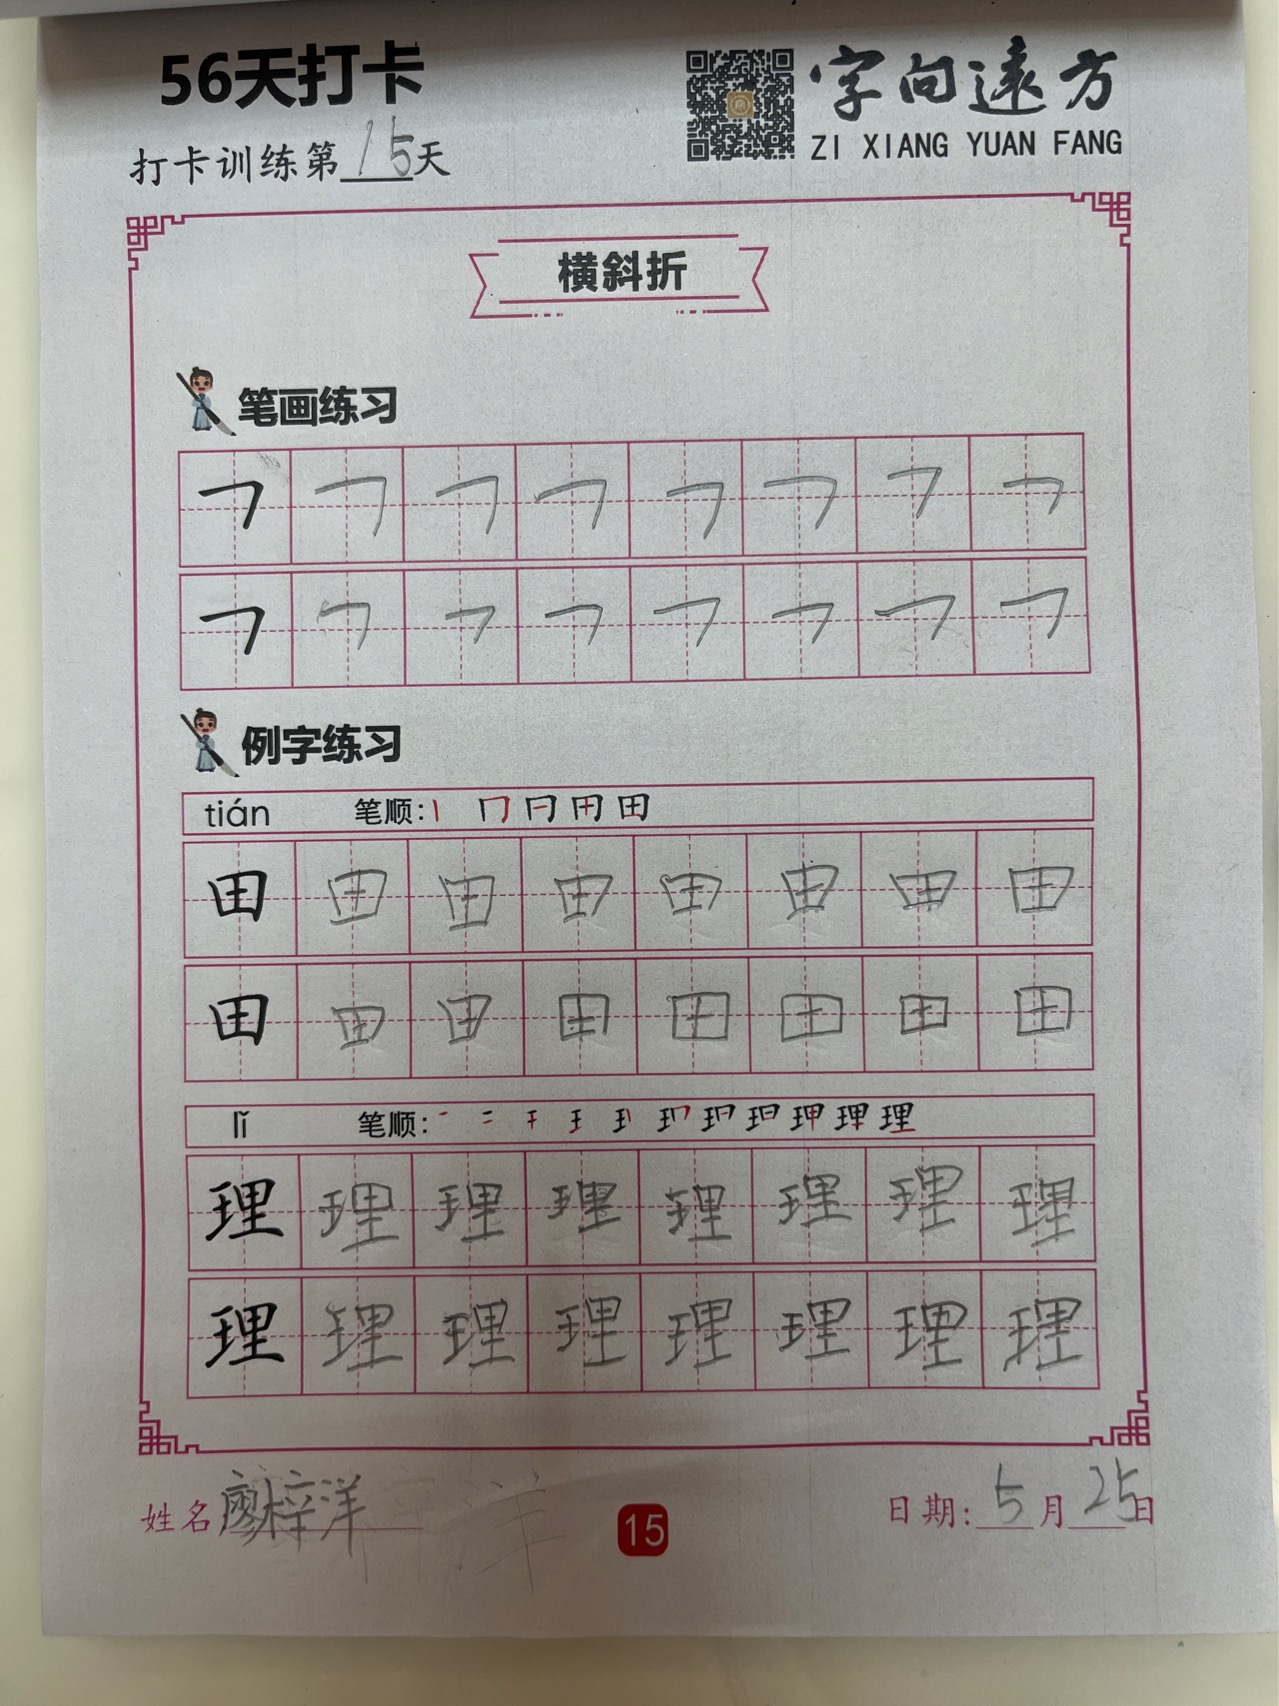 56天打卡
字向遠方
ZI XIANG YUAN FANG
打卡训练第15天
横斜折
笔画练习
㇇ ㇇ ㇇ ㇇ ㇇ ㇇ ㇇ ㇇
㇇ ㇇ ㇇ ㇇ ㇇ ㇇ ㇇ ㇇
例字练习
tián 笔顺: 丨 冂 日 田 田
田 田 田 田 田 田 田 田
田 田 田 田 田 田 田 田
lǐ 笔顺: 理
理 理 理 理 理 理 理 理
理 理 理 理 理 理 理 理
姓名 廖梓洋
15
日期: 5月25日